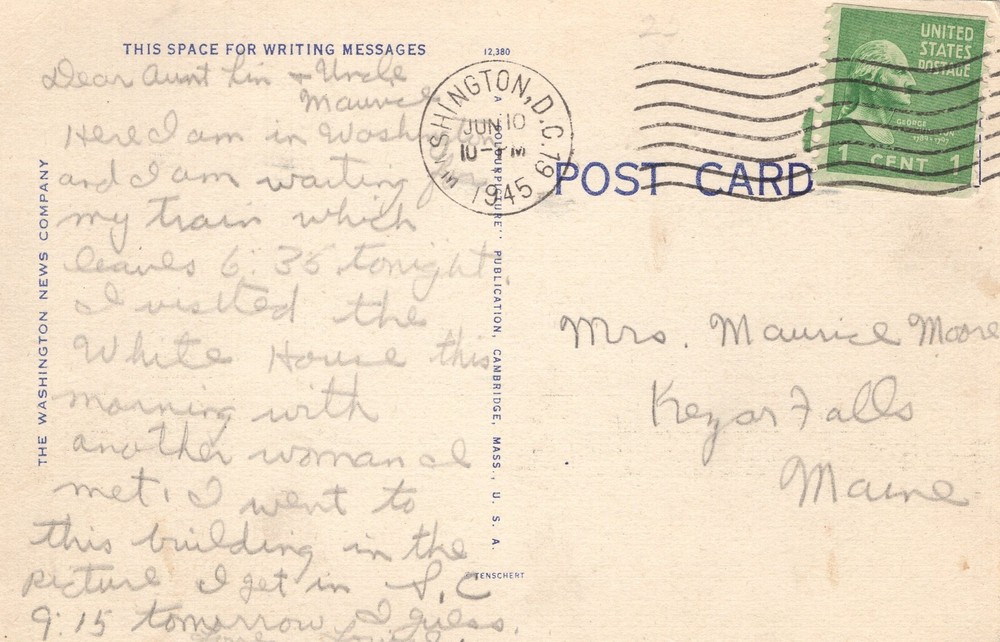 THIS SPACE FOR WRITING MESSAGES
12,380
Dear Aunt Lin & Uncle
Maurice
Here I am in Washington
and I am waiting for
my train which
leaves 6:35 tonight.
I visited the
White House this
morning with
another woman I
met. I went to
this building in the
picture I get in S.C
9:15 tomorrow I guess.
Love
THE WASHINGTON NEWS COMPANY
A "COLOURPICTURE" PUBLICATION, CAMBRIDGE, MASS., U. S. A.
TENSCHERT
WASHINGTON, D.C. 19
JUN 10
10-PM
1945
POST CARD
UNITED
STATES
POSTAGE
GEORGE
WASHINGTON
1 CENT 1
Mrs. Maurice Moore
Kezar Falls
Maine